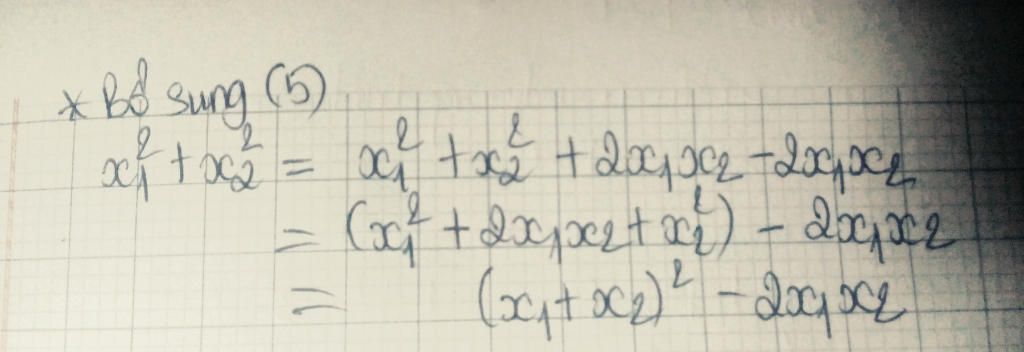 * Bổ sung (5)
x₁² + x₂² = x₁² + x₂² + 2x₁x₂ - 2x₁x₂
= (x₁² + 2x₁x₂ + x₂²) - 2x₁x₂
= (x₁ + x₂)² - 2x₁x₂